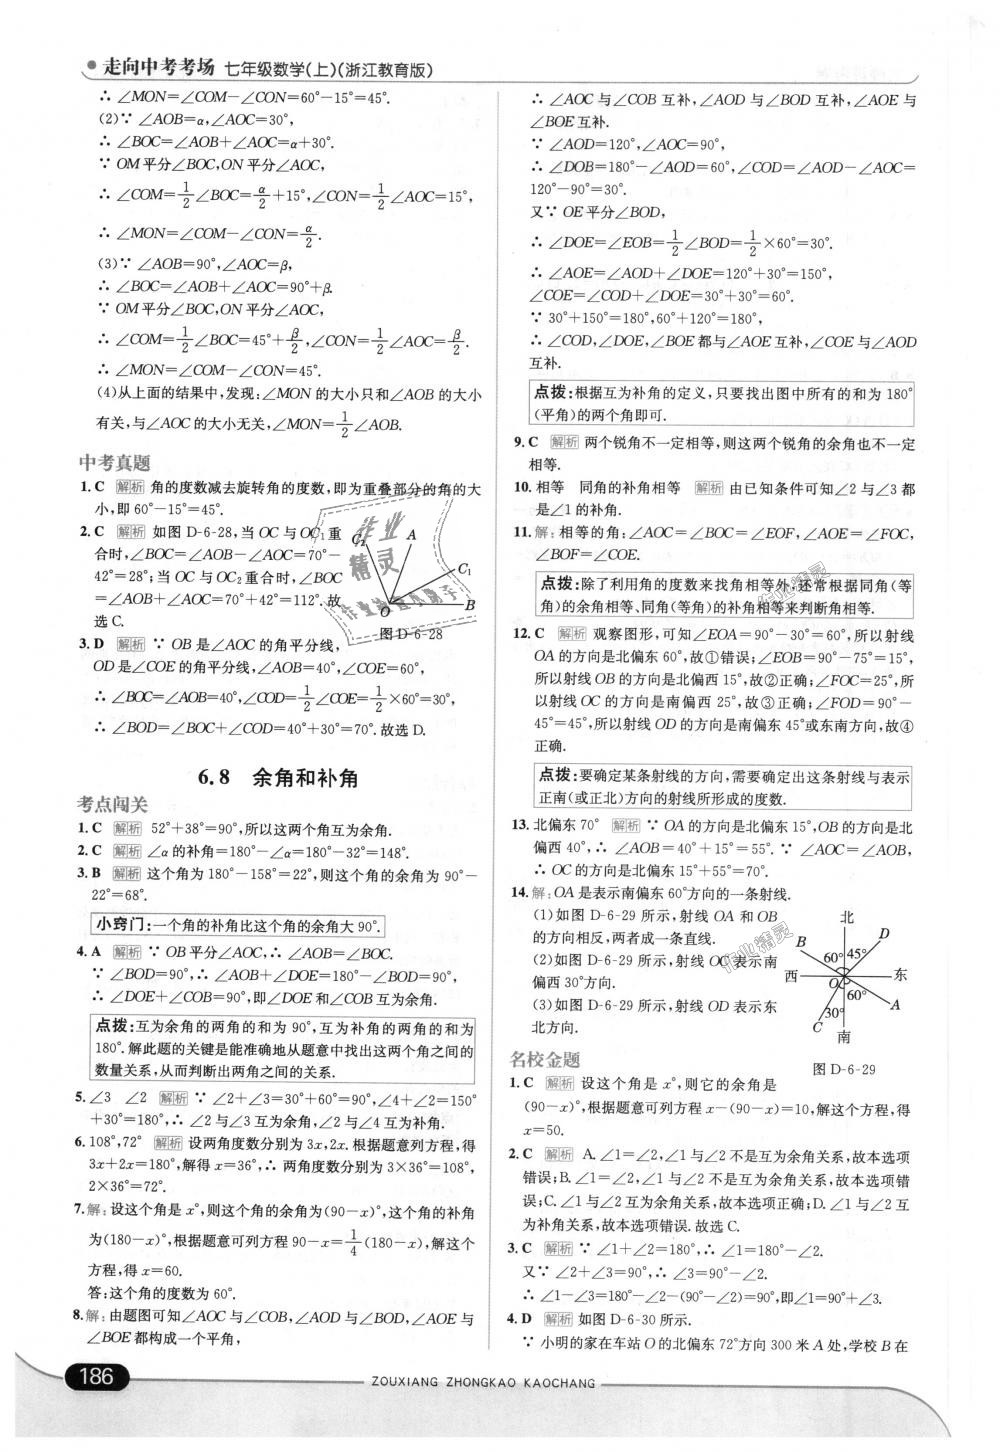 走向中考考场 七年级数学(上)(浙江教育版)
∴ ∠MON=∠COM−∠CON=60°−15°=45°.
(2)∵ ∠AOB=α,∠AOC=30°,
∴ ∠BOC=∠AOB+∠AOC=α+30°.
∵ OM平分∠BOC,ON平分∠AOC,
∴ ∠COM=1/2∠BOC=α/2+15°,∠CON=1/2∠AOC=15°,
∴ ∠MON=∠COM−∠CON=α/2.
(3)∵ ∠AOB=90°,∠AOC=β,
∴ ∠BOC=∠AOB+∠AOC=90°+β.
∵ OM平分∠BOC,ON平分∠AOC,
∴ ∠COM=1/2∠BOC=45°+β/2,∠CON=1/2∠AOC=β/2.
∴ ∠MON=∠COM−∠CON=45°.
(4)从上面的结果中,发现:∠MON的大小只和∠AOB的大小
有关,与∠AOC的大小无关,∠MON=1/2∠AOB.
中考真题
1. C 解析 角的度数减去旋转角的度数,即为重叠部分的角的大
小,即60°−15°=45°.
2. C 解析 如图D-6-28,当OC与OC₁重
合时,∠BOC=∠AOB−∠AOC=70°−
42°=28°;当OC与OC₂重合时,∠BOC
=∠AOC+∠AOB=70°+42°=112°.故
选C.
C₂ A C₁ O B
图D-6-28
3. D 解析 ∵ OB是∠AOC的角平分线,
OD是∠COE的角平分线,∠AOB=40°,∠COE=60°,
∴ ∠BOC=∠AOB=40°,∠COD=1/2∠COE=1/2×60°=30°,
∴ ∠BOD=∠BOC+∠COD=40°+30°=70°.故选D.
6.8 余角和补角
考点闯关
1. C 解析 52°+38°=90°,所以这两个角互为余角.
2. C 解析 ∠α的补角=180°−∠α=180°−32°=148°.
3. B 解析 这个角为180°−158°=22°,则这个角的余角为90°−
22°=68°.
小窍门:一个角的补角比这个角的余角大90°.
4. A 解析 ∵ OB平分∠AOC,∴ ∠AOB=∠BOC.
∵ ∠BOD=90°,∴ ∠AOB+∠DOE=180°−∠BOD=90°,
∴ ∠DOE+∠COB=90°,即∠DOE和∠COB互为余角.
点拨:互为余角的两角的和为90°,互为补角的两角的和为
180°.解此题的关键是能准确地从题意中找出这两个角之间的
数量关系,从而判断出两角之间的关系.
5. ∠3 ∠2 解析 ∵ ∠2+∠3=30°+60°=90°,∠4+∠2=150°
+30°=180°,∴ ∠2与∠3互为余角,∠2与∠4互为补角.
6. 108°,72° 解析 设两角度数分别为3x,2x.根据题意列方程,得
3x+2x=180°,解得x=36°,∴ 两角度数分别为3×36°=108°,
2×36°=72°.
7. 解:设这个角是x°,则这个角的余角为(90−x)°,这个角的补角
为(180−x)°,根据题意可列方程90−x=1/4(180−x),解这个
方程,得x=60.
答:这个角的度数为60°.
8. 解:由题图可知∠AOC与∠COB,∠AOD与∠BOD,∠AOE与
∠BOE都构成一个平角,
∴ ∠AOC与∠COB互补,∠AOD与∠BOD互补,∠AOE与
∠BOE互补.
∵ ∠AOD=120°,∠AOC=90°,
∴ ∠DOB=180°−∠AOD=60°,∠COD=∠AOD−∠AOC=
120°−90°=30°.
又∵ OE平分∠BOD,
∴ ∠DOE=∠EOB=1/2∠BOD=1/2×60°=30°.
∴ ∠AOE=∠AOD+∠DOE=120°+30°=150°,
∠COE=∠COD+∠DOE=30°+30°=60°.
∵ 30°+150°=180°,60°+120°=180°,
∴ ∠COD,∠DOE,∠BOE都与∠AOE互补,∠COE与∠AOD
互补.
点拨:根据互为补角的定义,只要找出图中所有的和为180°
(平角)的两个角即可.
9. C 解析 两个锐角不一定相等,则这两个锐角的余角也不一定
相等.
10. 相等 同角的补角相等 解析 由已知条件可知∠2与∠3都
是∠1的补角.
11. 解:相等的角:∠AOC=∠BOC=∠EOF,∠AOE=∠FOC,
∠BOF=∠COE.
点拨:除了利用角的度数来找角相等外,还常根据同角(等
角)的余角相等、同角(等角)的补角相等来判断角相等.
12. C 解析 观察图形,可知∠EOA=90°−30°=60°,所以射线
OA的方向是北偏东60°,故①错误;∠EOB=90°−75°=15°,
所以射线OB的方向是北偏西15°,故②正确;∠FOC=25°,所
以射线OC的方向是南偏西25°,故③正确;∠FOD=90°−
45°=45°,所以射线OD的方向是南偏东45°或东南方向,故④
正确.
点拨:要确定某条射线的方向,需要确定出这条射线与表示
正南(或正北)方向的射线所形成的度数.
13. 北偏东70° 解析 ∵ OA的方向是北偏东15°,OB的方向是北
偏西40°,∴ ∠AOB=40°+15°=55°.∵ ∠AOC=∠AOB,
∴ OC的方向是北偏东15°+55°=70°.
14. 解:OA是表示南偏东60°方向的一条射线.
(1)如图D-6-29所示,射线OA和OB
的方向相反,两者成一条直线.
(2)如图D-6-29所示,射线OC表示南
偏西30°方向.
(3)如图D-6-29所示,射线OD表示东
北方向.
北 D B 60° 45° 西 东 O 60° A 30° C 南
图D-6-29
名校金题
1. C 解析 设这个角是x°,则它的余角是
(90−x)°,根据题意可列方程x−(90−x)=10,解这个方程,得
x=50.
2. C 解析 A.∠1=∠2,∠1与∠2不是互为余角关系,故本选项
错误;B.∠1=∠2,∠1与∠2不是互为余角关系,故本选项错
误;C.∠1与∠2互为余角关系,故本选项正确;D.∠1与∠2互
为补角关系,故本选项错误.故选C.
3. C 解析 ∵ ∠1+∠2=180°,∴ ∠1=180°−∠2.
又∵ ∠2+∠3=90°,∴ ∠3=90°−∠2.
∴ ∠1−∠3=180°−∠2−(90°−∠2)=90°,即∠1=90°+∠3.
4. D 解析 如图D-6-30所示.
∵ 小明的家在车站O的北偏东72°方向300米A处,学校B在
186
ZOUXIANG ZHONGKAO KAOCHANG
作业精灵